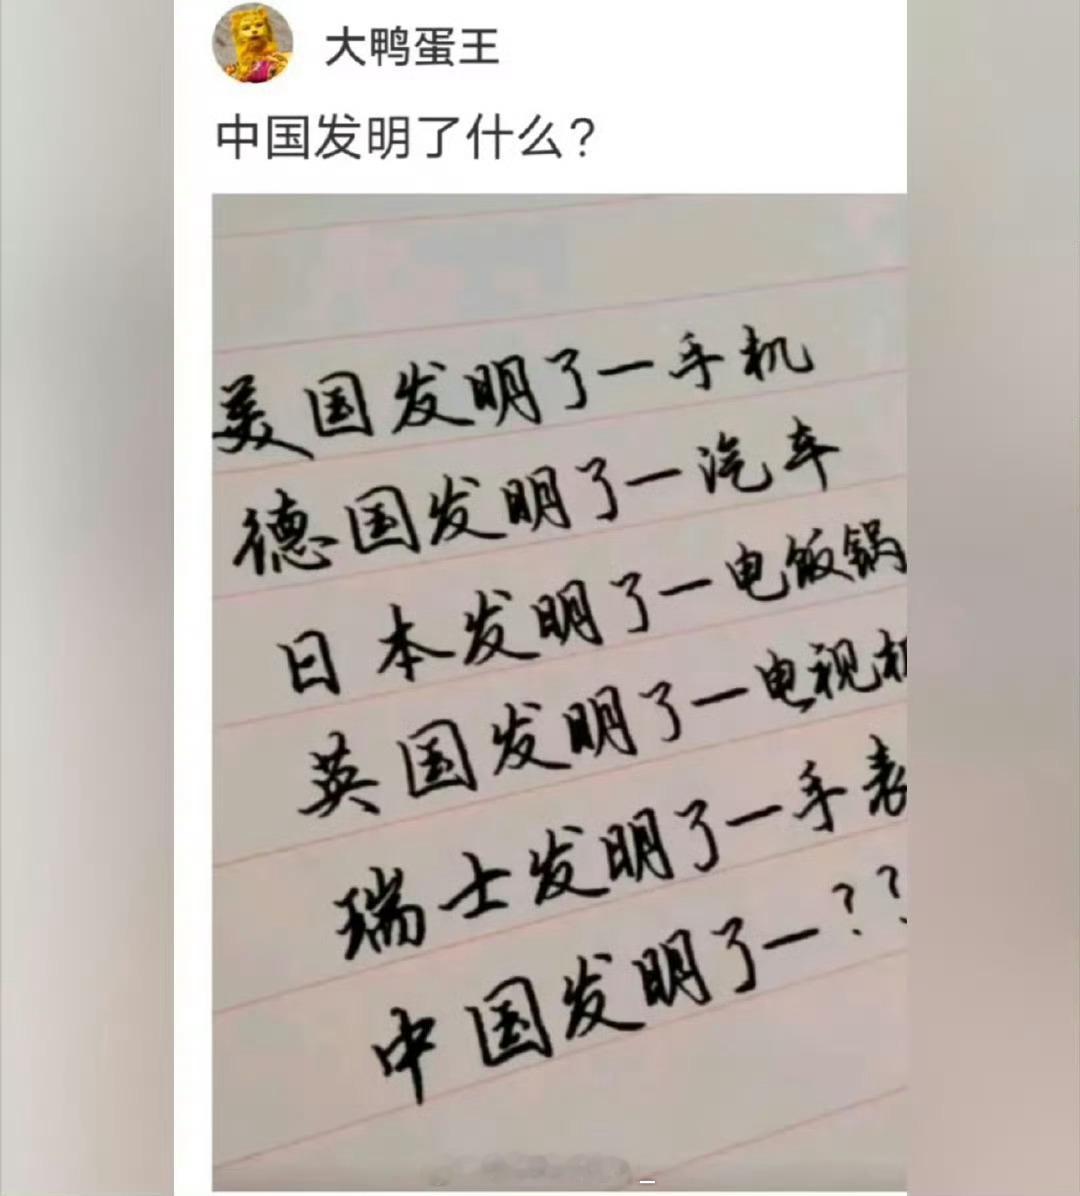 大鸭蛋王
中国发明了什么？
美国发明了一手机
德国发明了一汽车
日本发明了一电饭锅
英国发明了一电视机
瑞士发明了一手表
中国发明了一??